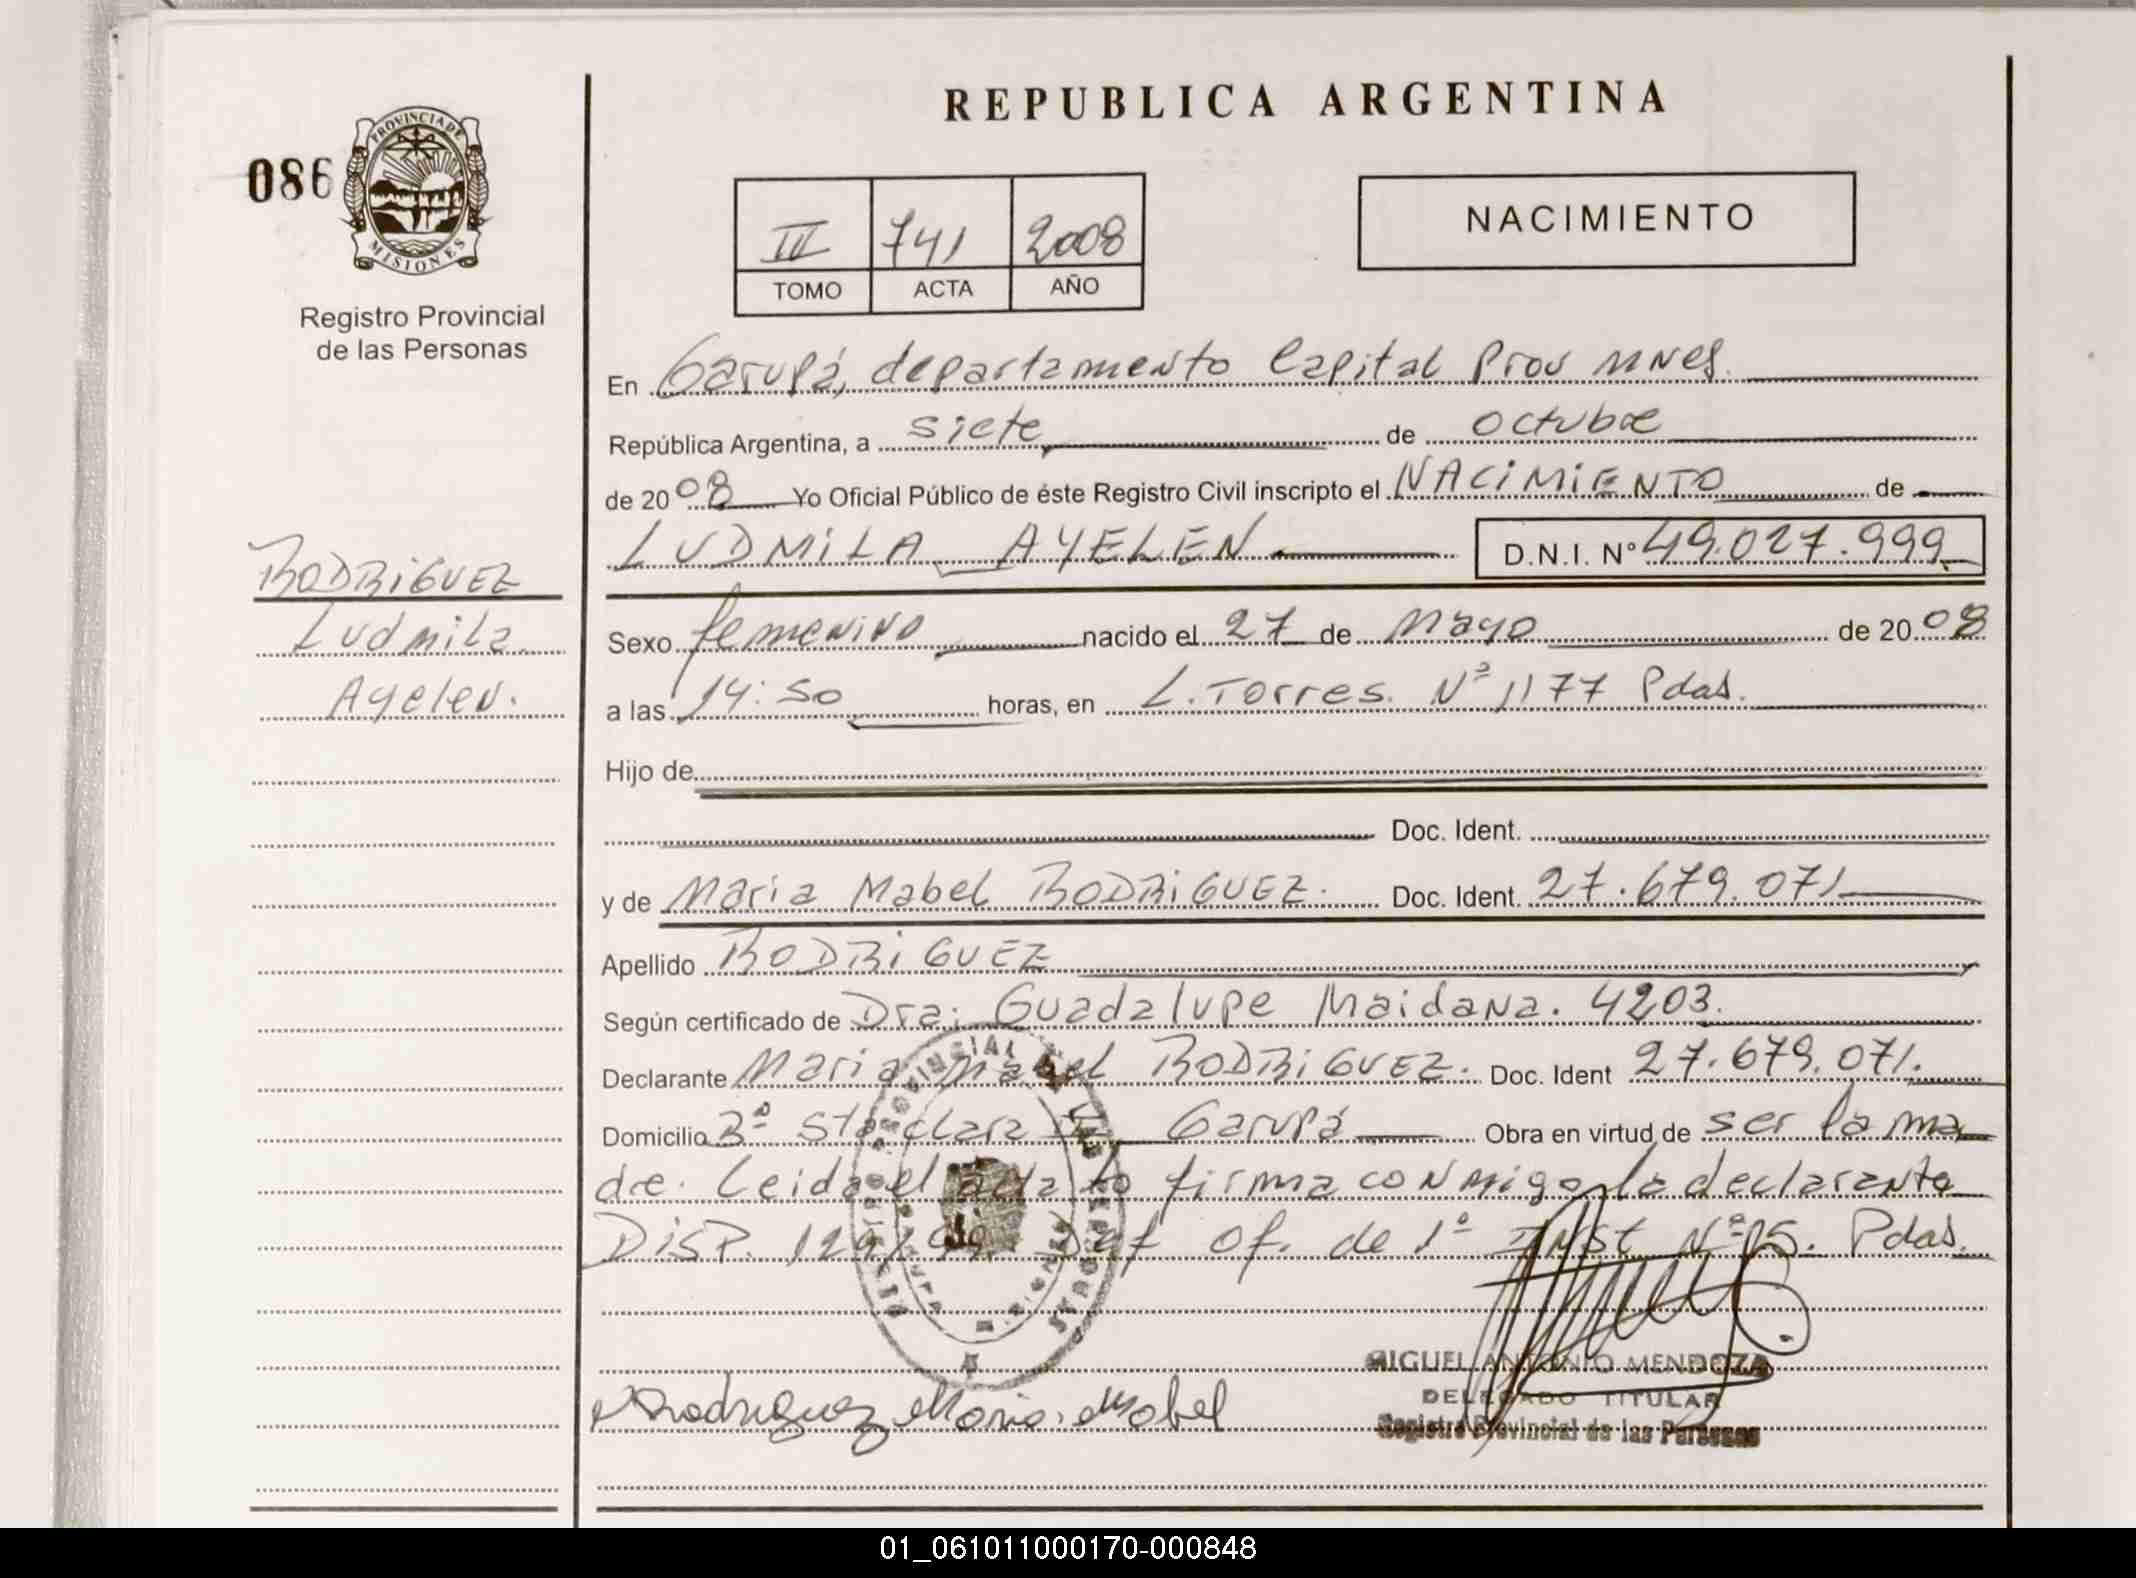 REPUBLICA ARGENTINA
086
PROVINCIA DE
MISIONES
Registro Provincial
de las Personas
741 2008
TOMO ACTA AÑO
NACIMIENTO
En Garupá, departamento Capital Prov Mnes.
República Argentina, a siete de octubre
de 2008 Yo Oficial Público de éste Registro Civil inscripto el NACIMIENTO de
LUDMILA AYELEN D.N.I. Nº 49.027.999
RODRIGUEZ
Ludmila
Ayelen.
Sexo femenino nacido el 27 de Mayo de 2008
a las 14:50 horas, en L. Torres. Nº 1177 Pdas.
Hijo de
Doc. Ident.
y de Maria Mabel RODRIGUEZ. Doc. Ident. 27.679.071
Apellido RODRIGUEZ
Según certificado de Dra: Guadalupe Maidana. 4203.
Declarante Maria Mabel RODRIGUEZ. Doc. Ident 27.679.071.
Domicilio Bº Sta Clara Garupá Obra en virtud de ser la ma
dre. Leida el acta la firma conmigo la declarante
DISP. Def of. de 1º Inst Nº Pdas.
MIGUEL ANTONIO MENDOZA
DELEGADO TITULAR
Registro Provincial de las Personas
Rodriguez Maria Mabel
01_061011000170-000848